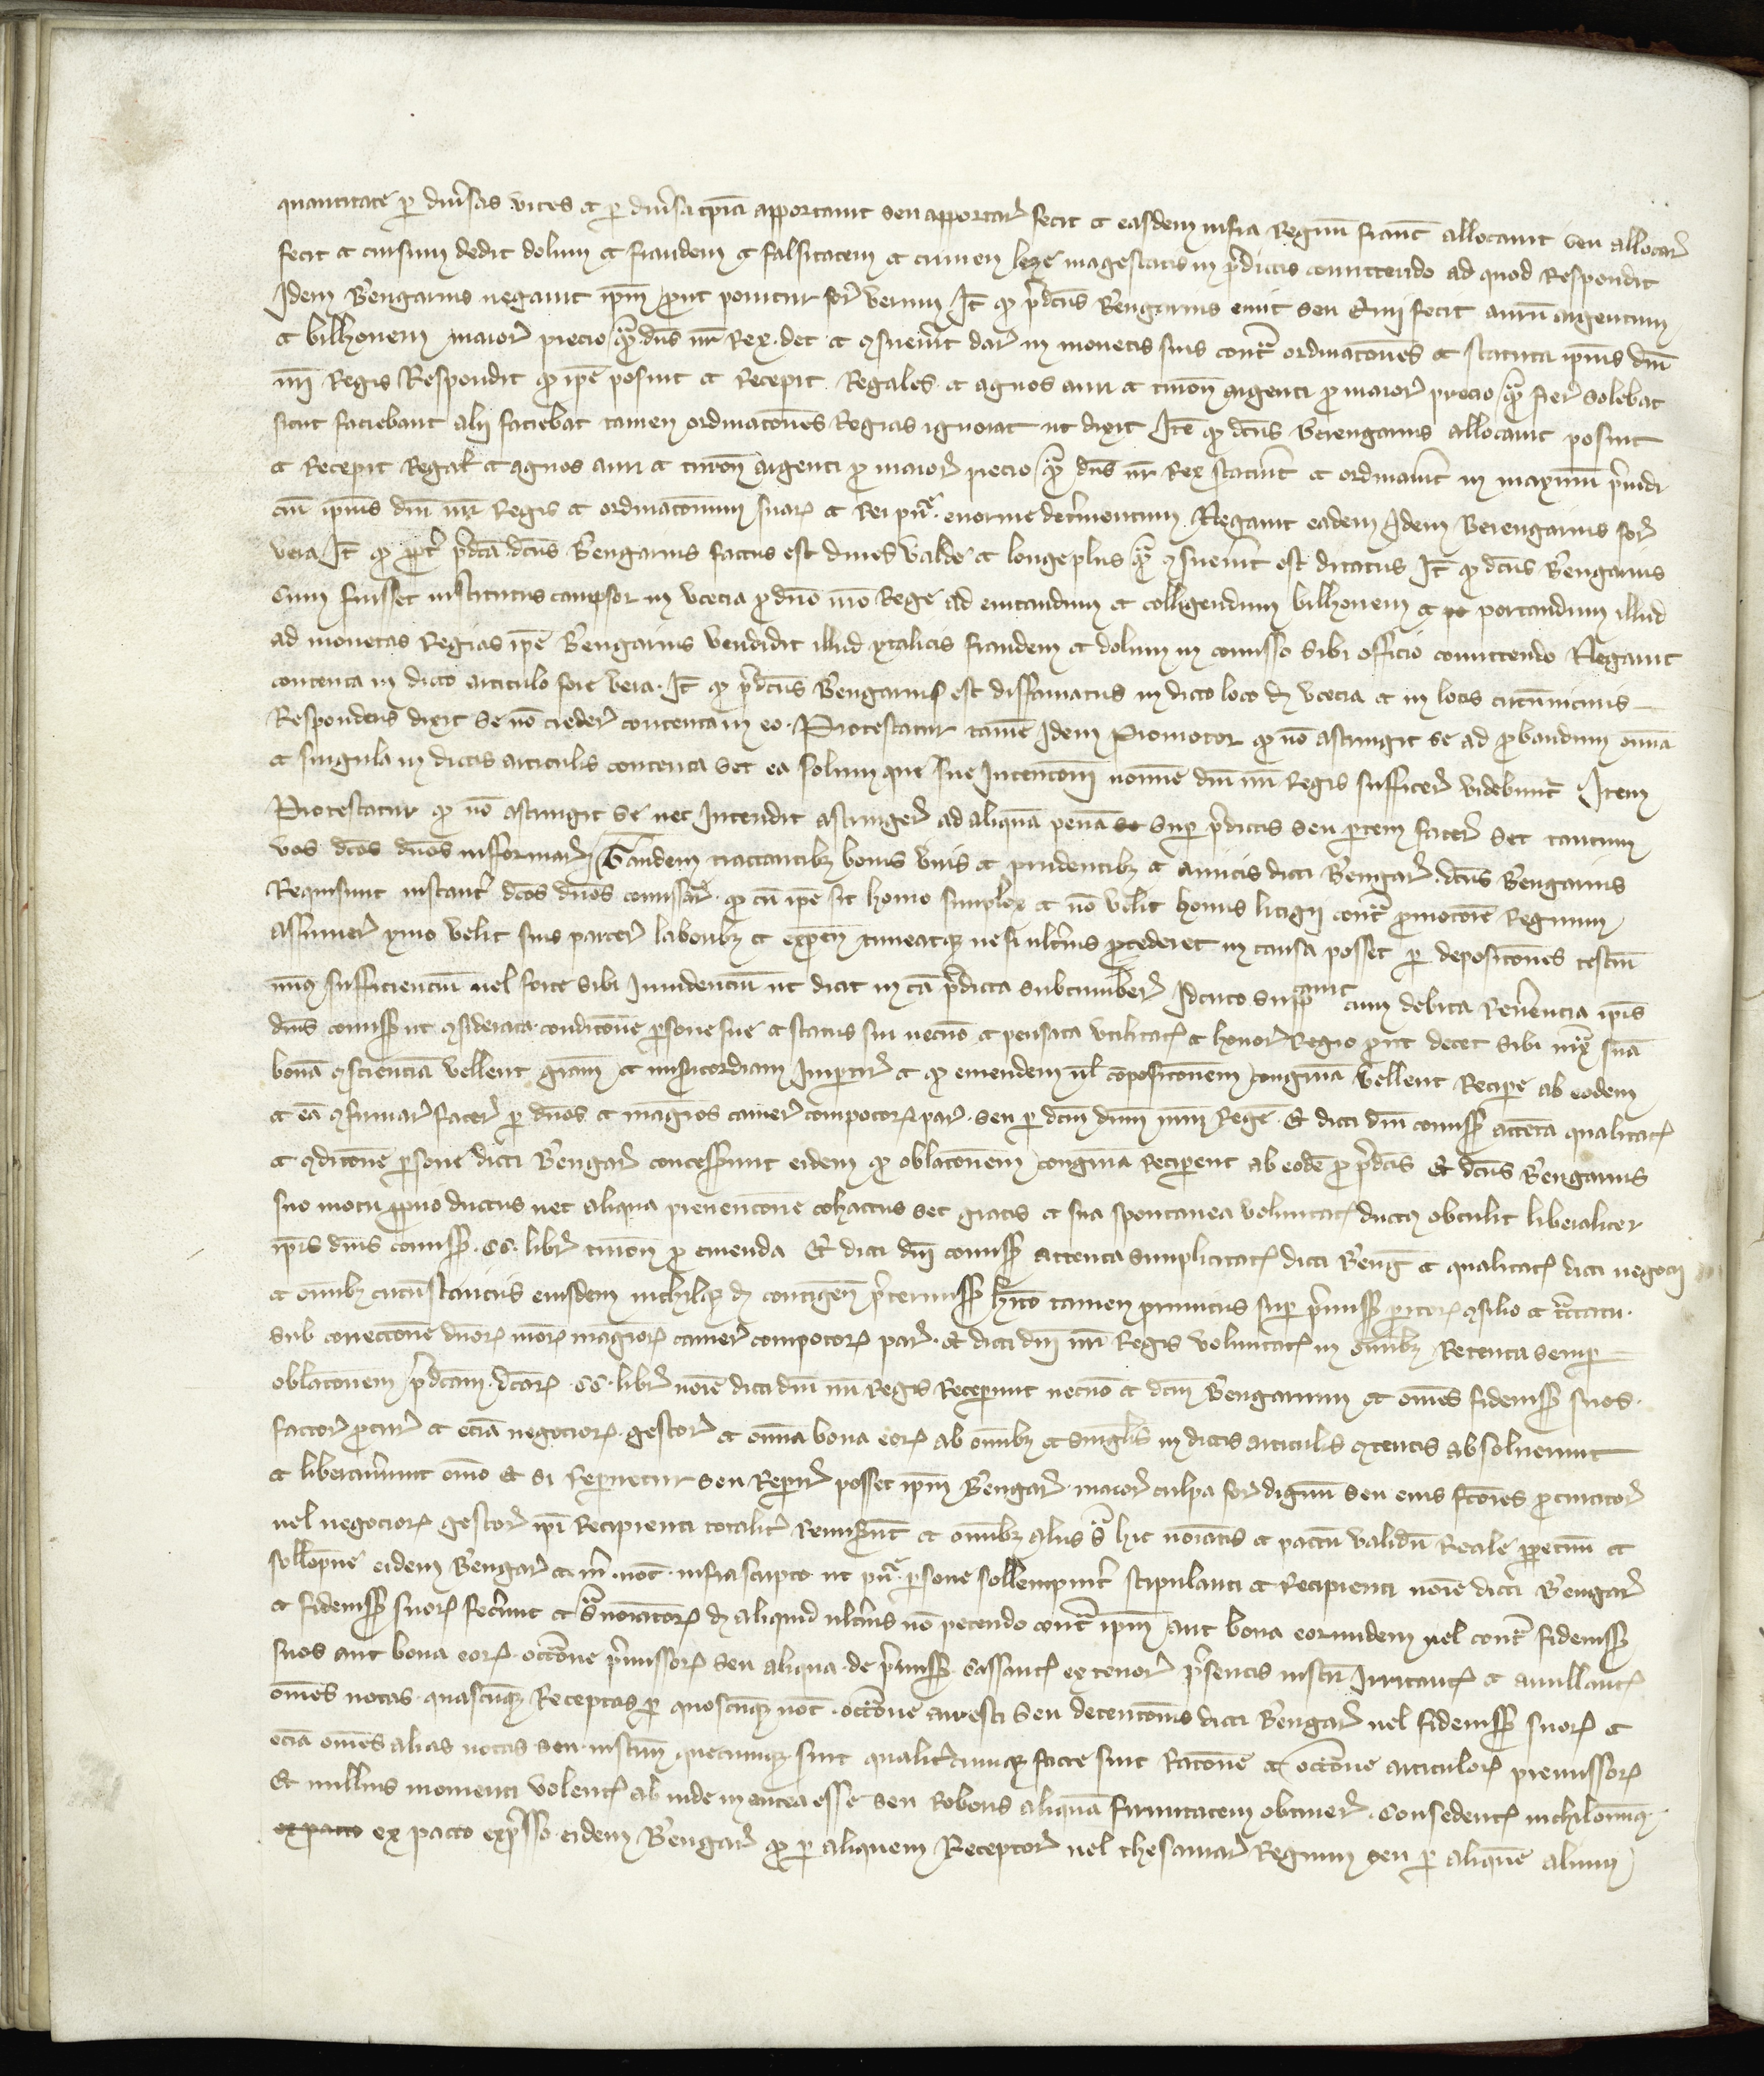 quantitate per diūsas vices et per diūsa tp̄ia apportauit seu apportar̄ fecit et easdem infra Regnū franc̄ allocauit seu allocar̄
fecit et cursum dedit dolum et fraudem et falsitatem et crimen leze magestatis in p̄dictis comittendo ad quod Respondit
Idem B̄engarius negauit ip̄m prout ponitur for̄ verum It̄ q̄ p̄dc̄us B̄engarius emit seu Emi fecit aurū argentum
et bilhonem maior̄ precio q̄m dn̄s nr̄ Rex det et ↄsueuit dar̄ in monetis suis contra ordinacōnes et statuta ip̄ius dn̄i
nr̄i Regis Respondit q̄ ip̄e posuit et recepit Regales et agnos auri et turon̄ argenti pro maior̄ precio q̄m fier̄ solebat
sicut faciebant alij faciebat tamen ordinacōnes Regias ignorat ut dixit Itē q̄ dc̄us Berengarius allocauit posuit
et Recepit Regal̄ et agnos auri et turon̄ argenti pro maior̄ precio q̄m dn̄s nr̄ Rex statuit et ordinauit in maximū p̄iudi
ciū ip̄ius dn̄i nr̄i Regis et ordinacōnum suar̄ et Rei pu.ce enorme det̄imentum Negauit eadem Idem Berengarius for̄
vera It̄ q̄ ppt̄ p̄dc̄a dc̄us B̄engarius factus est diues valde et longe plus q̄m ↄsueuit est ditatus It̄ q̄ dc̄us B̄engarius
Cum fuisset institutus campsor in Vcecia pro dn̄o nr̄o Rege ad emendum et colligendum bilhonem et portandum illud
ad monetas Regias ip̄e B̄engarius vendidit illud ytalicis fraudem et dolum in comisso sibi officio comittendo Negauit
contenta in dicto articulo fore vera It̄ q̄ p̄dc̄us B̄engarius est diffamatus in dicto loco de Vcecia et in locis circūuicinis
Respondens dixit se nō creder̄ contenta in eo Protestatur tamē Idem Promotor q̄ nō astringit se ad probandum omīa
et singula in dictis articulis contenta set ea solum que sue Intencōni nomine dn̄i nr̄i Regis sufficer̄ videbunt̄ Item
Protestatur q̄ nō astringit se nec Intendit astringer̄ ad aliquā penā sup p̄dictis seu partem facer̄ set tantum
vos dc̄os dn̄os informar̄ Tandem tractantibȝ bonis viris et prudentibȝ et amicis dicti B̄engar̄ dc̄us B̄engarius
Requisiuit instant̄ dc̄os dn̄os comissar̄ q̄ cū ip̄e sit homo simplex et nō velit honus litigij contra promotorē Regium
assumer̄ ymo velit suis parcer̄ laboribȝ et expen̄ timeatqȝ ne si ulterius procederet in causa posset per deposicōnes testiū
minus sufficienciū uel forte sibi Inuidenciū ut dicit in cā p̄dicta subcumber̄ Idcirco supplicauit cum debita Reu̅encia ip̄is
dn̄is comiss̄ ut ↄsiderata condicōne persone sue et status sui necnō et pensata vtilitate et honor̄ Regio prout decet sibi iuxta suā
bonā ↄscienciā vellent gr̄am et misericordiam Impartir̄ et q̄ emendem uel cōposicōnem congruā vellent Recipere ab eodem
et eā ↄfirmar̄ facer̄ per dn̄os et magr̄os camer̄ compotor̄ par̄ seu per dc̄m dn̄m nr̄m Regē Et dicti dn̄i comiss̄ attenta qualitate
et ↄdicōne persone dicti B̄engar̄ concesserunt eidem q̄ oblacōnem congruā reciperent ab eodē pro p̄dc̄is Et dc̄us B̄engarius
suo motu proprio ductus nec aliqua preuencōne cohactus set gratis et sua spontanea voluntate ductus obtulit liberaliter
ip̄is dn̄is comiss̄ CC libr̄ turon̄ pro emenda Et dicti dn̄i comiss̄ attenta simplicitate dicti B̄enḡ et qualitate dicti negocij
et omībȝ circūstanciis eiusdem nichilqȝ de contigen̄ p̄termiss̄ hīto tamen primitus sup p̄miss̄ peritor̄ ↄsilio et tractatu
sub correctione dn̄or̄ nr̄or̄ magr̄or̄ camer̄ compotor̄ par̄ et dicti dn̄i nr̄i Regis voluntate in omībȝ Retenta semper
oblacōnem p̄dc̄am dc̄ar̄ CC libr̄ noīe dicti dn̄i nr̄i Regis Receperunt necnō et dc̄m B̄engarium et omēs fideiuss̄ suos
factor̄ procur̄ et eciā negocior̄ gestor̄ et omīa bona eor̄ ab omībȝ et singulis in dictis articulis ↄtentis absoluerunt
et liberauerunt omō Et si reperiretur seu Reperir̄ posset ip̄m B̄engar̄ maior̄ culpa for̄ dignū seu eius fc̄ores procurator̄
uel negocior̄ gestor̄ ip̄i Recipienti totalit̄ Remiserunt et omībȝ aliis sup̄ hic noīatis et pactū validū Reale ppetuū et
sollēpne eidem B̄engar̄ et m̄ not̄ infrascripto ut pu.ce persone sollempnit̄ stipulanti et recipienti noīe dicti B̄engar̄
et fideiuss̄ suor̄ fecerunt et sup̄noīator̄ de aliquid ulterius nō petendo contra ip̄m aut bona eorumdem uel contra fideiuss̄
suos aut bona eor̄ occōne p̄missor̄ seu aliqua de p̄miss̄ Cassantes ex tenor̄ p̄sentis instr̄ Irritantes et anullantes
omēs notas quascūqȝ Receptas per quoscūqȝ not̄ occōne arresti seu detencōnis dicti B̄engar̄ uel fideiuss̄ suor̄ et
eciā omēs alias notas seu instr̄m quecumqȝ sint qualit̄cumqȝ facte sint Racōne et occōne articulor̄ premissor̄
Et nullius momenti volentes ab inde in antea esse seu Roboris aliquā firmitatem obtiner̄ Consedentes nichilominus
ex pacto ex pacto exp̄sso eidem B̄engar̄ q̄ per aliquem Receptor̄ uel thesaurar̄ Regium seu per aliquē alium